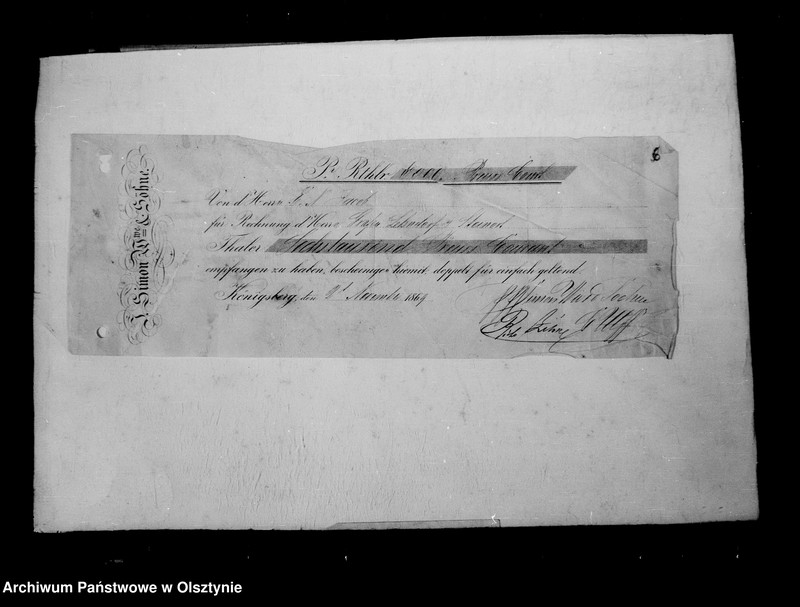 6
J. Simon Wwe & Söhne.
Pr. Rthlr. 6000, Preuss Court
Von d' Herrn
für Rechnung d' Herrn Graf Lehndorf Steinort
Thaler Sechstausend Preuss Courant
empfangen zu haben, bescheinige hiemit doppelt für einfach geltend
Königsberg, den 9t November 1864
J. Simon Wwe & Soehne
Archiwum Państwowe w Olsztynie